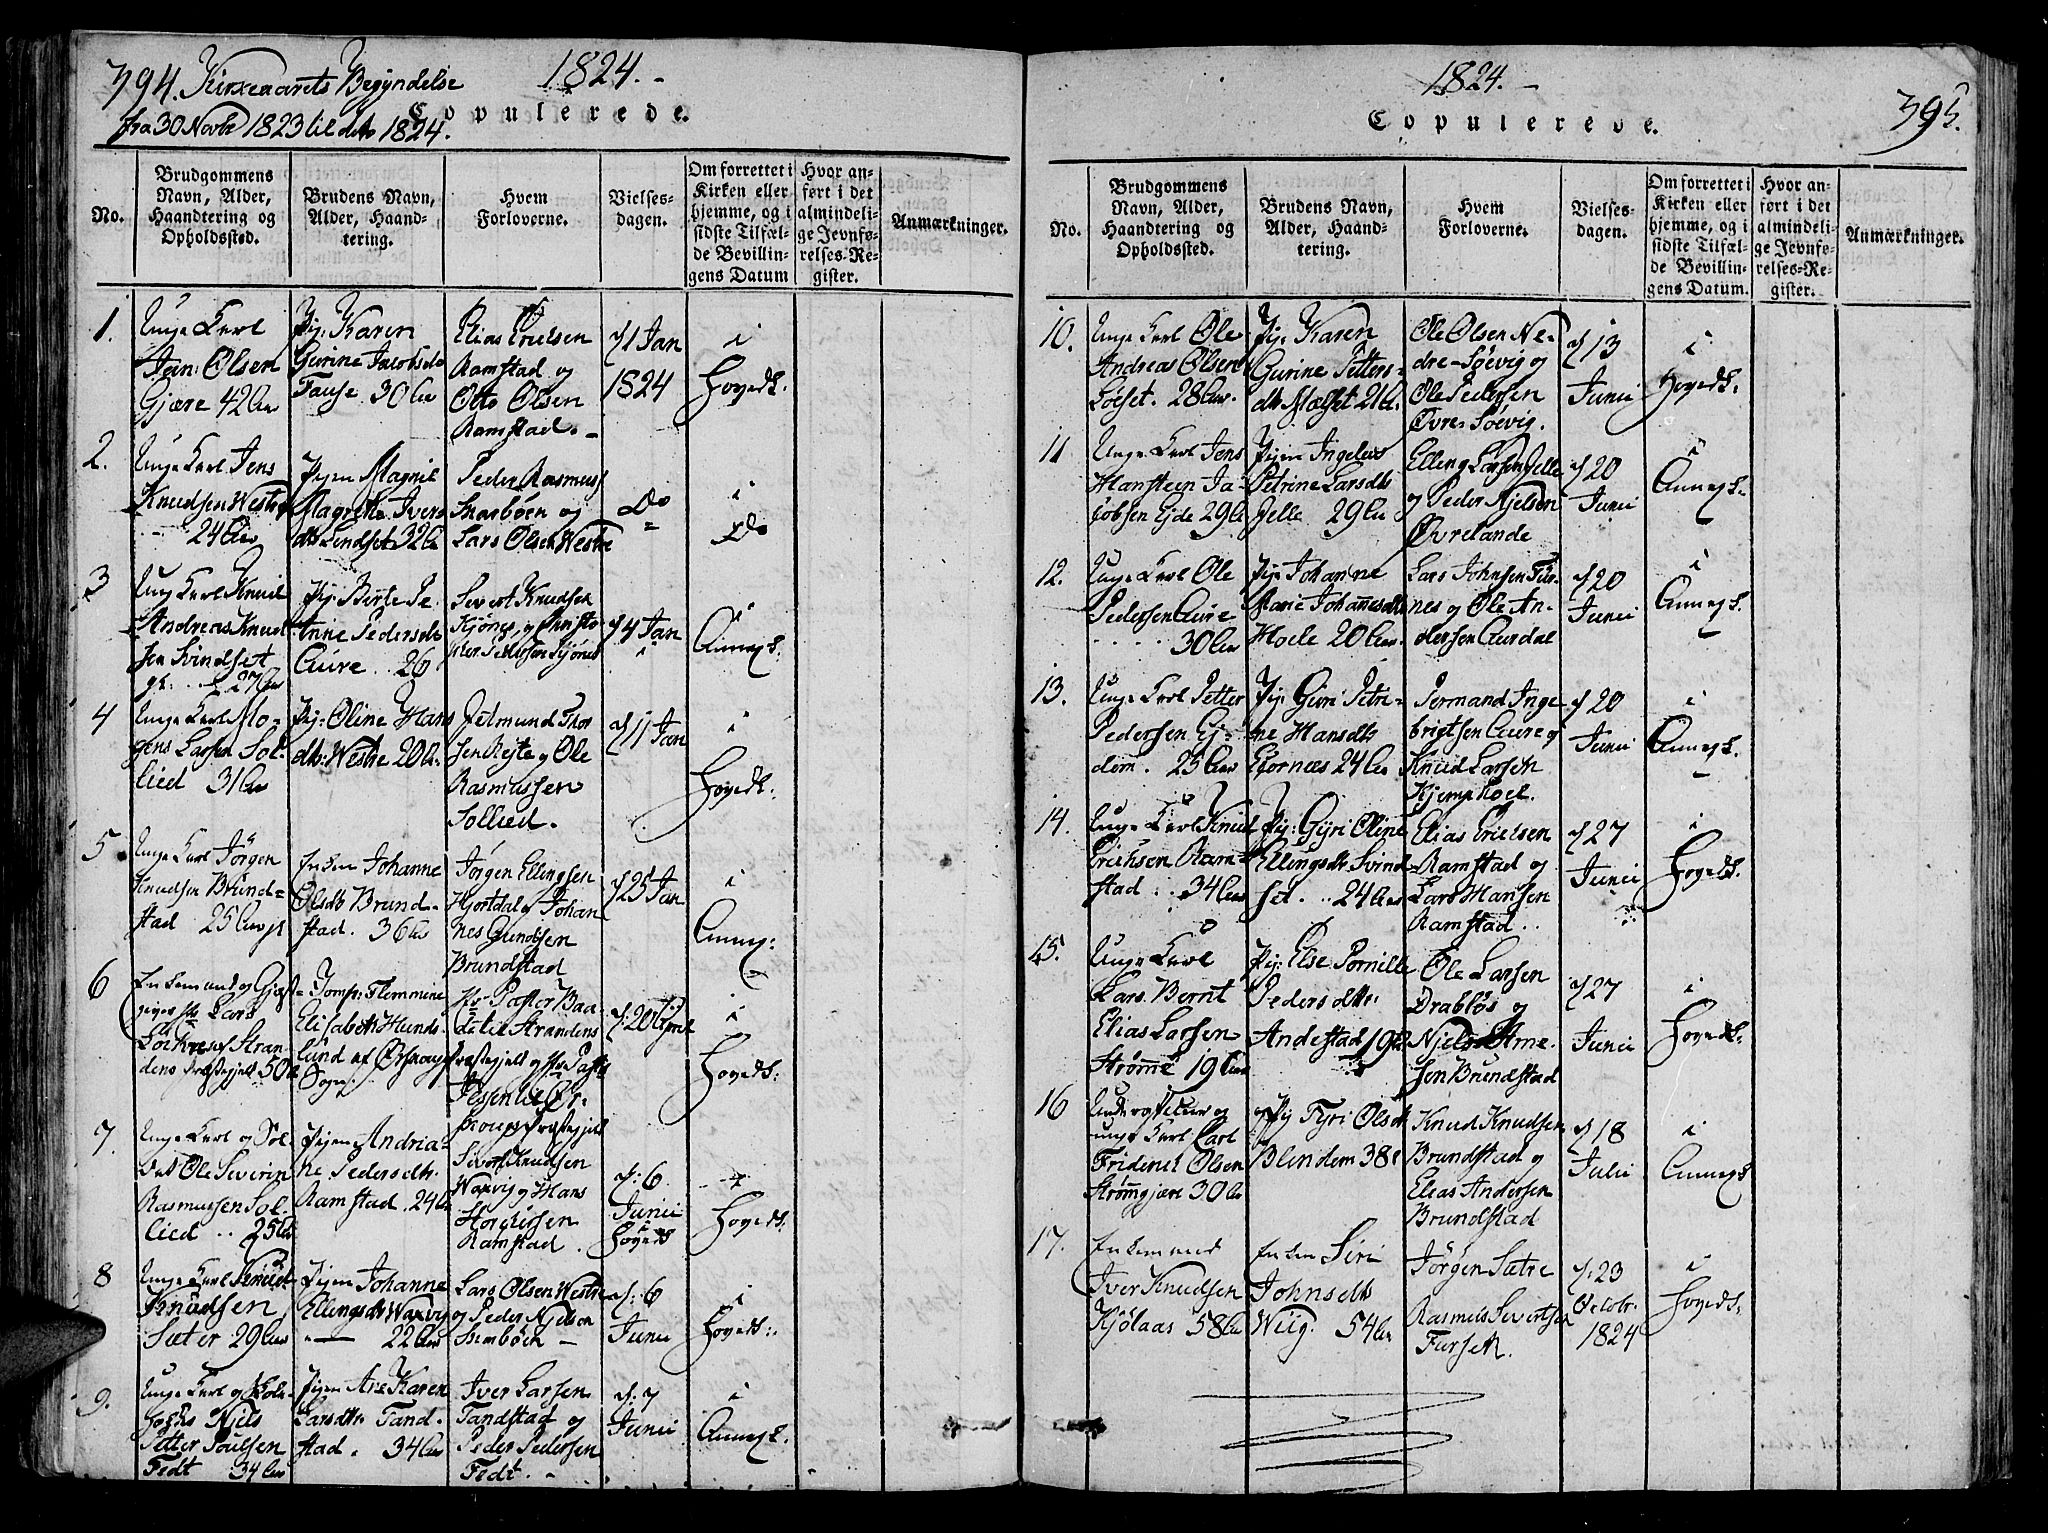 394. Kirkeaarets Begyndelse 1824.-
Copulerede.
fra 30 Novbr 1823 til dito 1824.
No.
Brudgommens Navn, Alder, Haandtering og Opholdssted.
Brudens Navn, Alder, Haandtering.
Hvem Forloverne.
Vielses-dagen.
Om forrettet i Kirken eller hjemme, og i sidste Tilfælde Bevillingens Datum
Hvor anført i det almindelige Jevnførelses-Register.
Anmærkninger.
1.
Unge Karl
Jan: Olsen
Gjære 42 Aar
Pig: Karen
Gurine Jacobsdr
Fause 30 Aar
Elias Erichsen
Ramstad og
Otto Olsen
Ramstad.-
d 1 Jan
1824
i
Hovedk:
2.
Unge Karl Jens
Knudsen Westre
24 Aar
Pigen Magnil
Magrethe Ivers
dtr Lindset 32 Aar
Peder Rasmuss
Snarbøen og
Lars Olsen Westre
Do
i
Do
3
Ung Karl Knud
Andreas Knud
sen Svindset
27 Aar
Pig: Birte Pe
trine Pedersdtr
Aure .. 26
Sivert Knudsen
Kjønes og Christo
pher Pedersen Sjønes
d 4 Jan
i
Annexk:
4
Unge Karl Mo-
gens Larsen Sol-
lied 31 Aar
Pig: Oline Hans
dtr: Westre 20 Aar
Jetmund Thor
sen Rejte og Ole
Rasmussen
Sollied.
d 11 Jan
i
Hovedk:
5
Unge Karl Jørgen
Knudsen Brund-
stad 25 Aar
Enken Johanne
Olsdtr Brund-
stad. 36 Aar
Jørgen Ellingsen
Hjortdal og Johan
nes Gundsen
Brundstad
d 25 Jan
i
Annex:
6
Enkemand og Gjæst-
giver Hr Lars
Lochres af Stran
dens Præstegjeld 50 Aar
Jomf: Flemmine
Elisabeth Hunds
lund af Ørskoug
Sogn.
Hr Pastor Baa
de til Strandens
Præstegjeld og Hr Pastor
Jessen til Ør-
skougs Præstegjeld
d: 20 April
i
Hovedk:
7
Unge Karl og Sol
dat Ole Severin
Rasmussen Sol-
lied .. 25 Aar
Pigen Andria-
ne Pedersdtr.
Ramstad. 24 Aar
Sivert Knudsen
Waxvig og Hans
Ramstad.
d: 6
Junii
i
Hovedk
Hovedk.
8
Unge Karl Knud
Knudsen
Sæter 29 Aar
Pigen Johanne
Ellingsdtr Waxvig
22 Aar
Lars Olsen Westre
og Peder Njelsen
d: 6
Junii
i
Hovedk:
9.
Unge Karl og Skole-
Njels
Petter Poulsen
Fedt 34 Aar
Pigen Ane Karen
Larsdtr Tand-
stad. 34 Aar
Iver Larsen
Tandstad og
Peder Pedersen
Fedt. -
d: 7
Junii
i
Annexk.
1824.-
Copulerede.
395.
No.
Brudgommens Navn, Alder, Haandtering og Opholdssted.
Brudens Navn, Alder, Haandtering.
Hvem Forloverne.
Vielses-dagen.
Om forrettet i Kirken eller hjemme, og i sidste Tilfælde Bevillingens Datum.
Hvor anført i det almindelige Jevnførelses-Register.
Anmærkninger.
10.
Unge Karl Ole
Andreas Olsen
Løset. 28 Aar.
Pig: Karen
Gurine Petters-
dtr Mælset 21 Aar
Ole Olsen Ne-
dre-Søevig og
Ole Pedersen
Øvre Søevig.
d 13
Junii
i
Hovedk:
11
Unge Karl Jens
Hansteen Ja-
cobsen Ejde 29 Aar
Pigen Ingeborg
Petrine Larsdtr
Jelle 29 Aar
Elling Larsen Jelle
og Peder Njelsen
Øvrelande
d 20
Junii
i
Annexk.
12.
Unge Karl Ole
Pedersen Aure
30 Aar
Pig: Johanne
Marie Johannesdtr
Hoele 20 Aar.
Lars Johnsen Tus-
nes og Ole An-
dersen Aurdal
d 20
Junii
i
Annexk.
13.
Unge Karl Petter
Pedersen Ej-
dem. 25 Aar
Pig: Guri Petri-
ne Hansdtr
Ejornæs 24 Aar
Permand Inge
brigtsen Aure og
Knud Larsen
Kjemphoel.
d 20
Junii
i
Annexk.
14.
Unge Karl Knud
Erichsen Ram-
stad .. 34 Aar
Pig: Gyri Oline
Ellingsdtr Svind
set. .. 24 Aar
Elias Erichsen
Ramstad og
Lars Hansen
Ramstad ..
d 27
Junii
i
Hovedk.
15.
Unge Karl
Lars Bernt
Elias Larsen
Strømme 19 Aar
Pig: Else Pernille
Pedersdtr:
Andestad 19 Aar
Ole Larsen
Drabløs og
Njels Arne-
sen Brundstad
d 27
Junii
i
Hovedk:
16
unge Karl Carl
Friderich Olsen
Strømgjære 30 Aar
Pig Gyri Olsdtr
Blindem 38
Knud Knudsen
Brundstad og
Elias Andersen
Brundstad
d 18
Julii
i
Annexk
17.
Enkemand
Iver Knudsen
Kjølaas 58 Aar
Enken Siri
Johnsdtr
Wiig. 54 Aar
Jørgen Sætre
Rasmus Sivertsen
Furseth.
d: 23
Octobr.
1824
i
Hovedk: